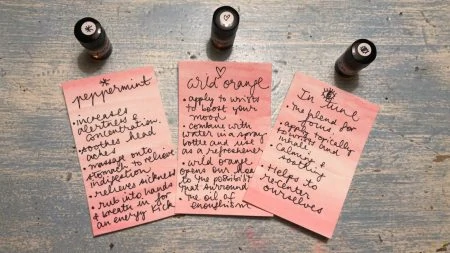 peppermint
• increases
alertness &
concentration.
• soothes head
aches
• massage onto
stomach to relieve
indigestion
• relieves sickness
• rub into hands
& breath in for
an energy kick
wild orange
• apply to wrists
to boost your
mood
• combine with
water in a spray
bottle and use
as a refreshener
• wild orange
opens our
to the
that surround
the oil of
In tune
• The blend for
focus.
• apply topically
to wrists and
inhale
• Calming &
soothing
• Helps to
recenter
ourselves